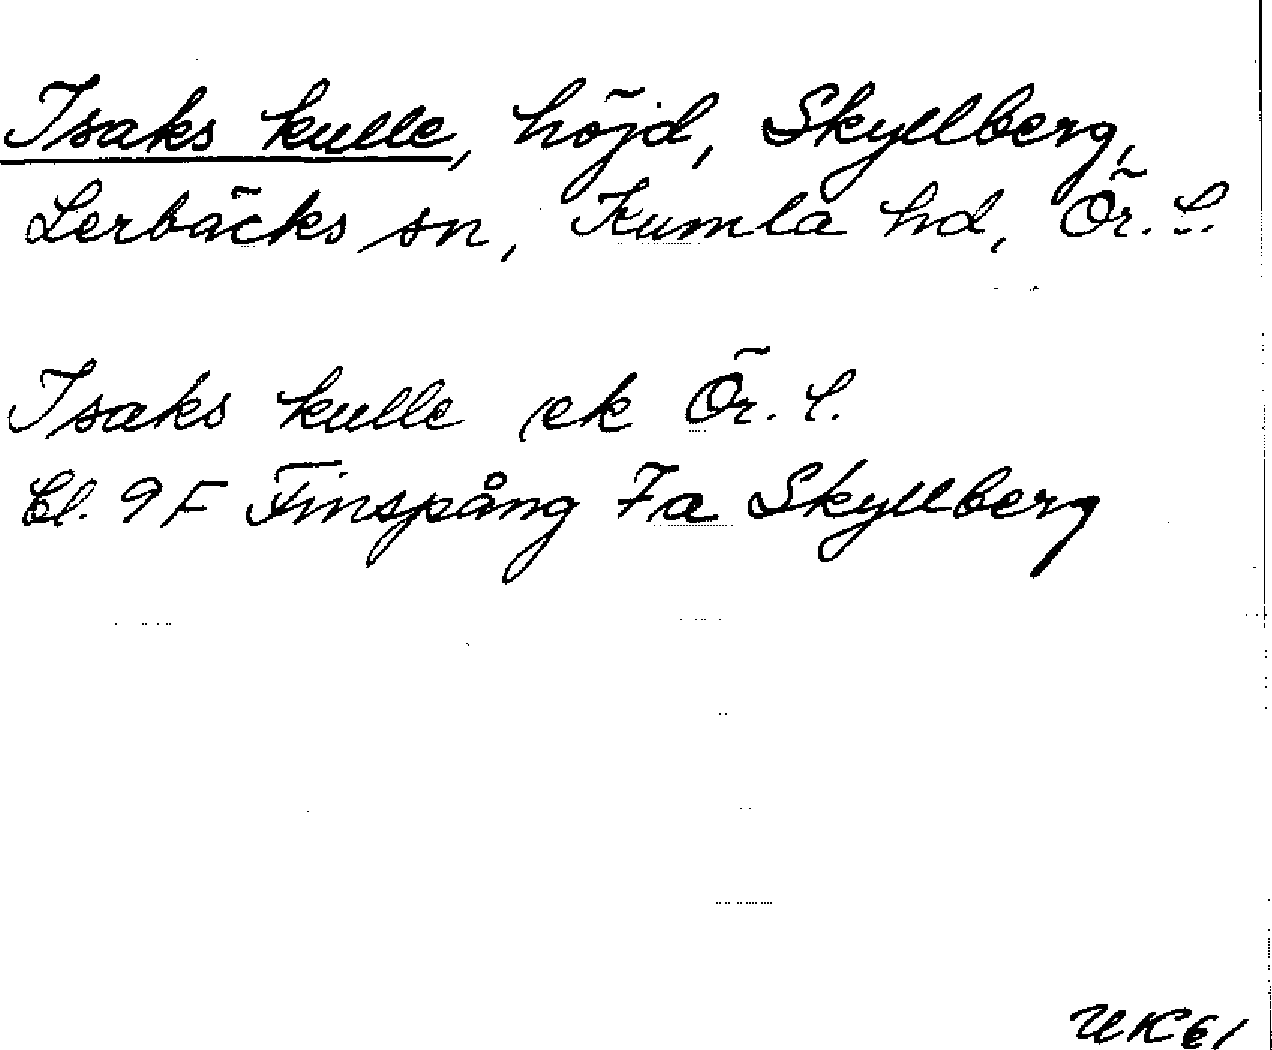 Isaks kulle, höjd, Skyllberg,
Lerbäcks sn, Kumla hd, Ör. L.
Isaks kulle ek Ör. L.
Bl. 9F Finspång 7a Skyllberg